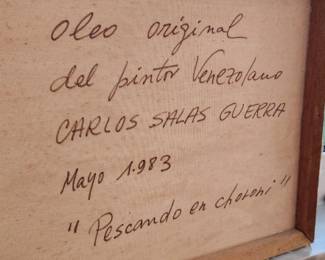 Oleo original
del pintor Venezolano
CARLOS SALAS GUERRA
Mayo 1.983
"Pescando en choroni"